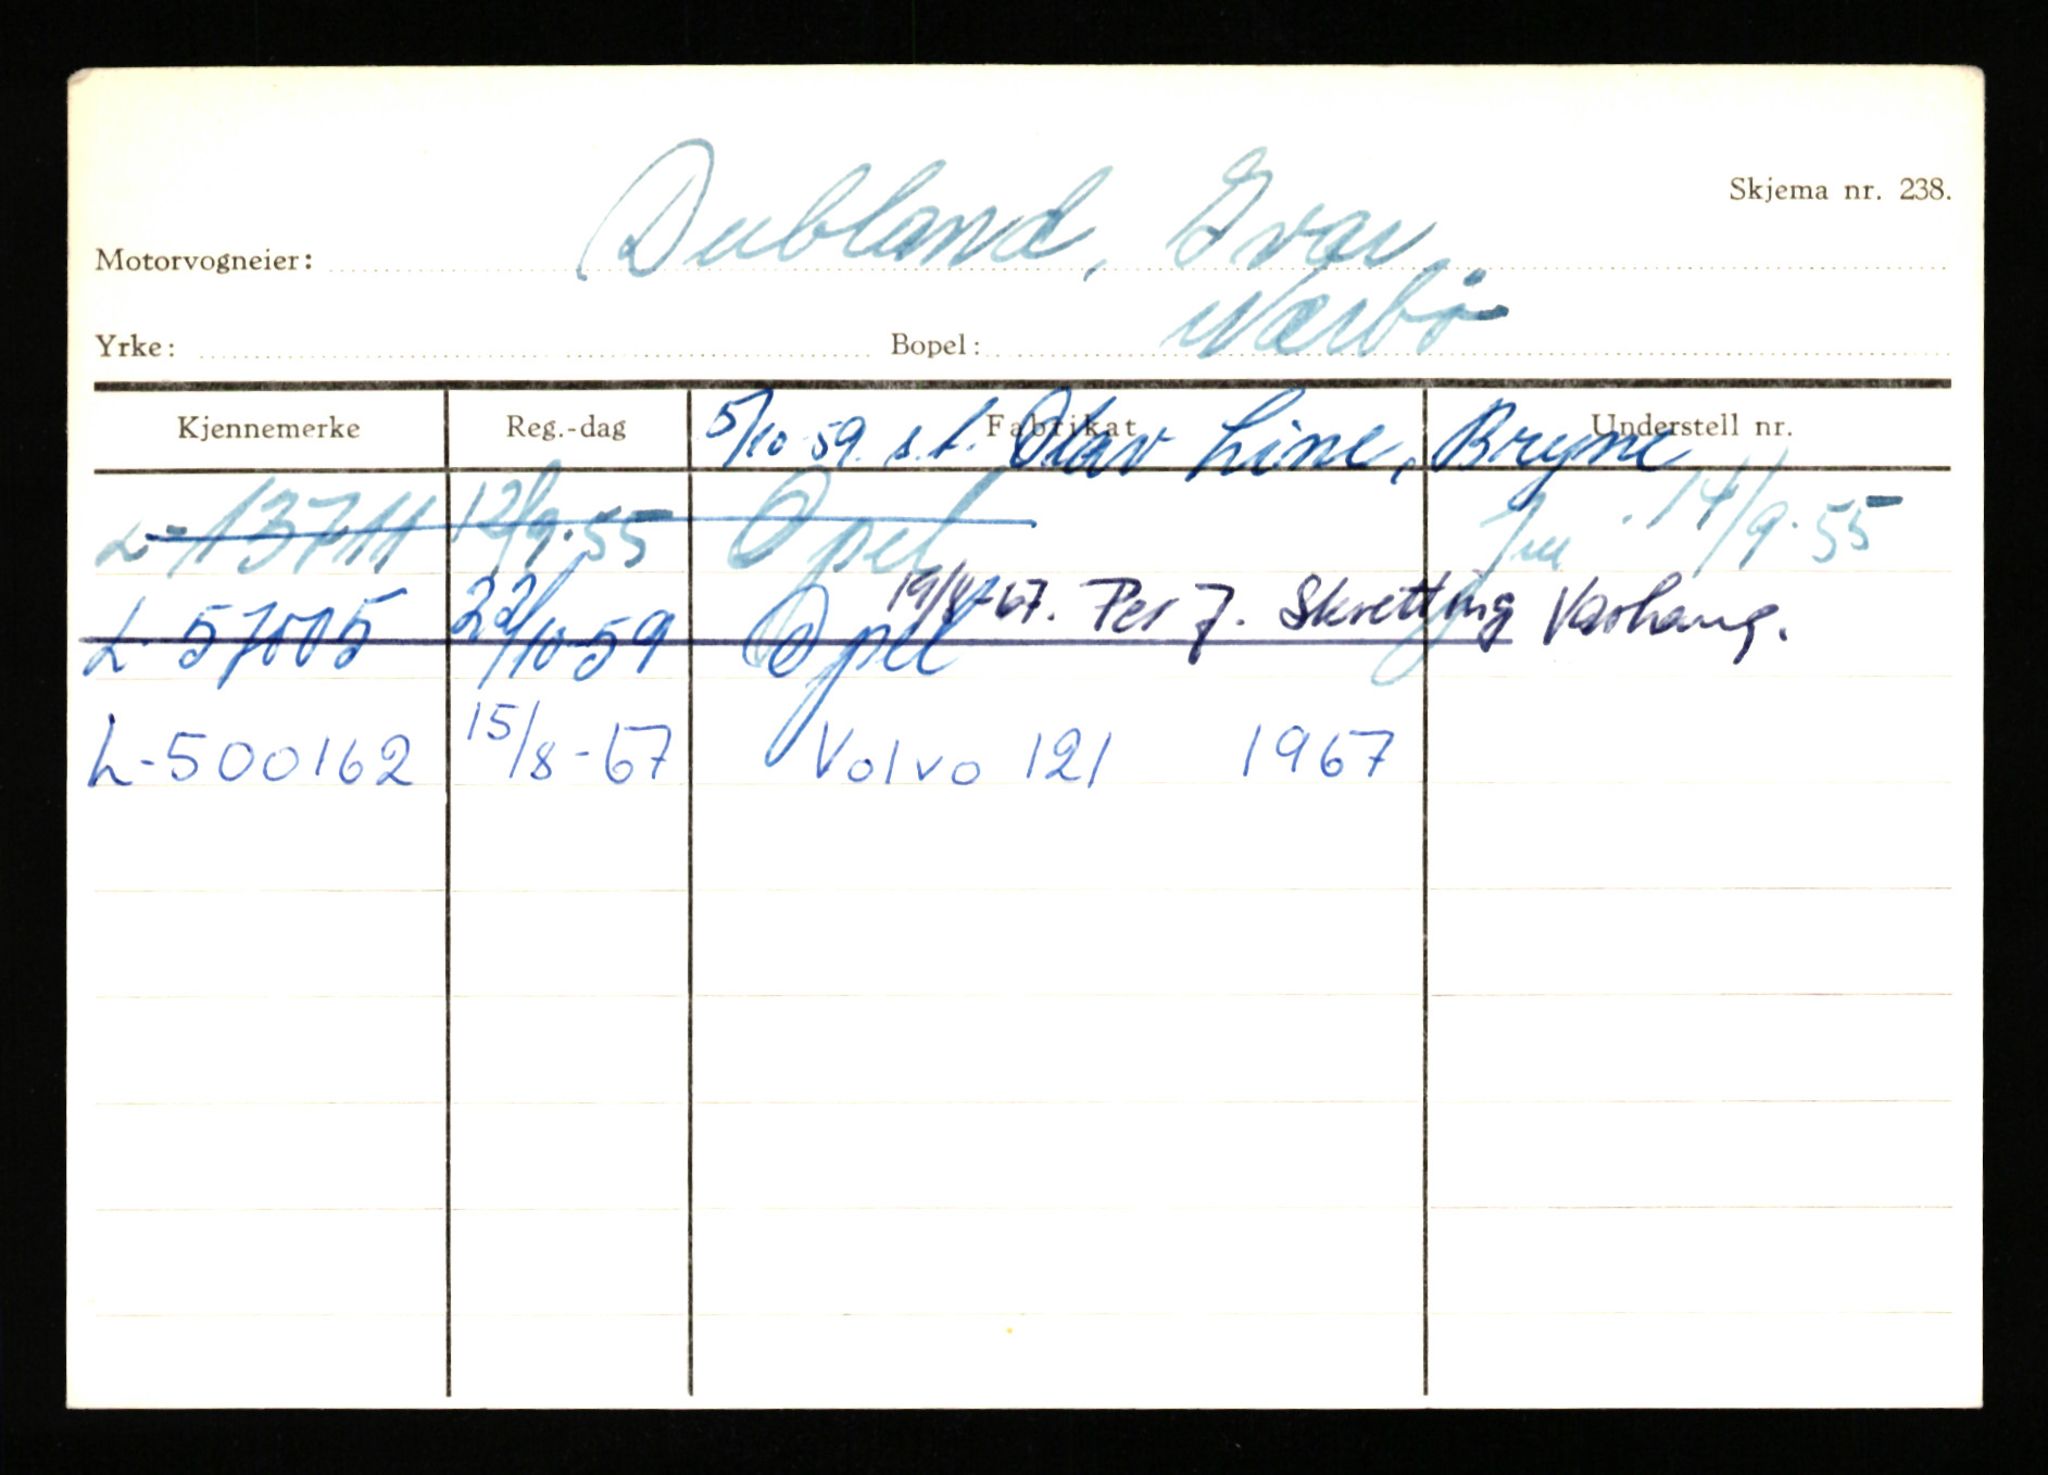 Skjema nr. 238.
Motorvogneier: Dubland, Ivar,
Yrke: Bopel: Nærbø
Kjennemerke Reg.-dag Fabrikat Understell nr.
5/10-59. s.t. Olav Line, Bryne
L-13711 12/9-55 Opel 14/9-55
19/8-67. Per J. Skretting Varhaug.
L-57005 22/10-59 Opel
L-500162 15/8-67 Volvo 121 1967